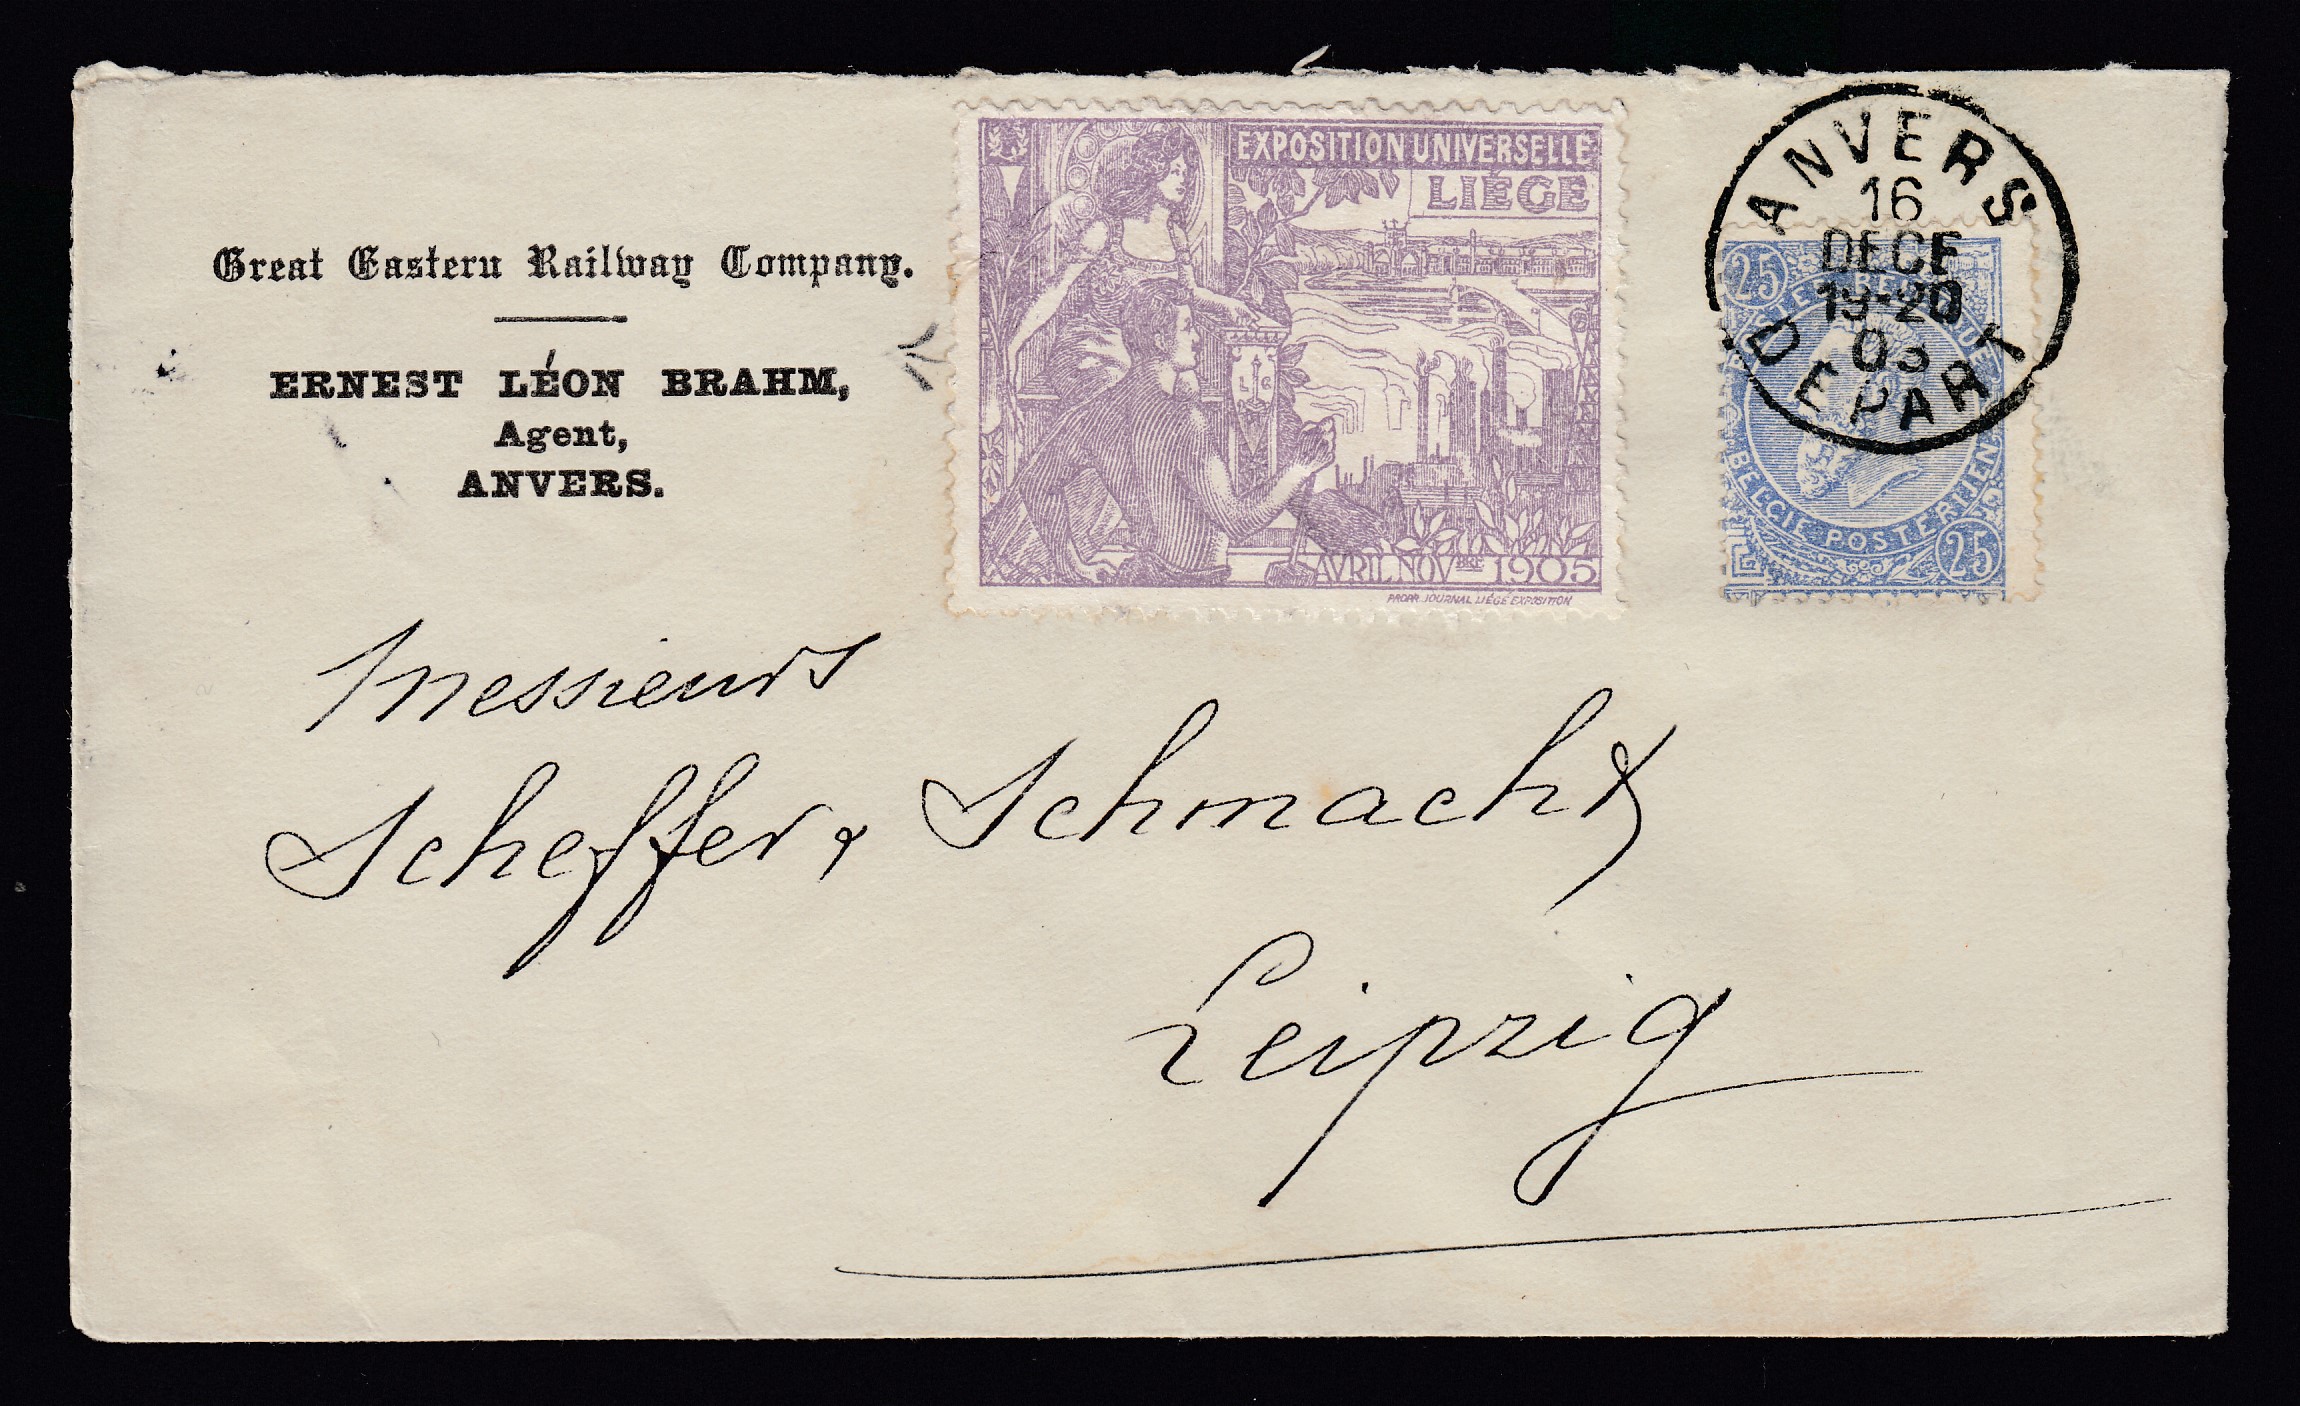 Great Eastern Railway Company.
ERNEST LÉON BRAHM,
Agent,
ANVERS.
EXPOSITION UNIVERSELLE
LIÉGE
L G
AVRIL NOVBRE 1905
PROPR. JOURNAL LIÉGE EXPOSITION
ANVERS
16
DECE
19-20
03
DEPART
25
BELGIE POSTERIJEN
25
Messieurs
Scheffer & Schmacht
Leipzig